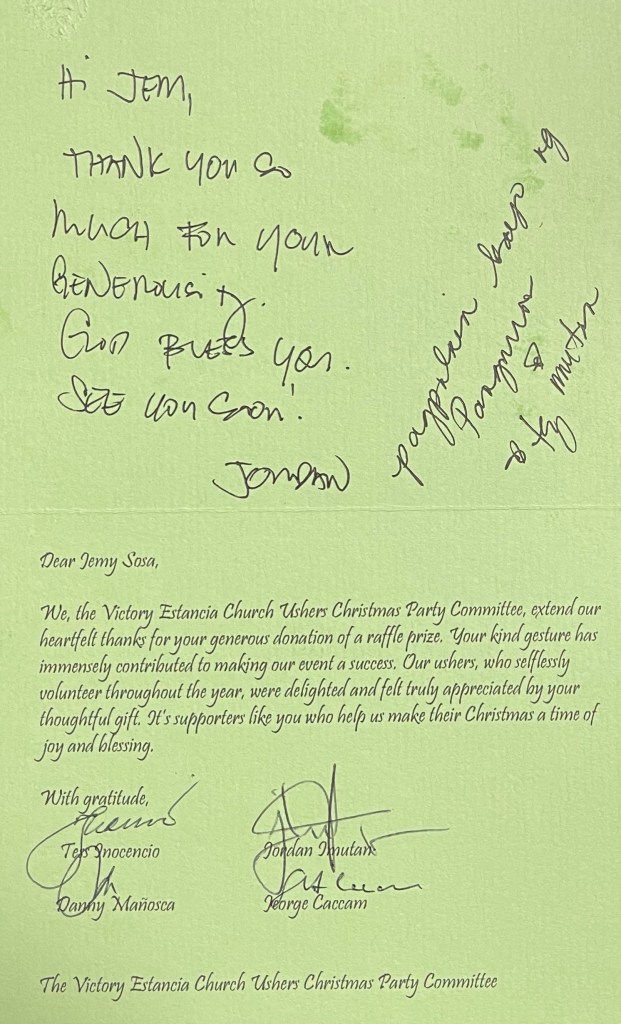 Hi JEM,
THANK YOU SO
MUCH FOR YOUR
GENEROUSITY.
GOD BLESS YOU.
SEE YOU SOON!
JORDAN
pagpalain kayo ng
Panginoon
Dear Jemy Sosa,
We, the Victory Estancia Church Ushers Christmas Party Committee, extend our
heartfelt thanks for your generous donation of a raffle prize. Your kind gesture has
immensely contributed to making our event a success. Our ushers, who selflessly
volunteer throughout the year, were delighted and felt truly appreciated by your
thoughtful gift. It's supporters like you who help us make their Christmas a time of
joy and blessing.
With gratitude,
Tess Inocencio Jordan Imutan
Danny Mañosca Jeorge Caccam
The Victory Estancia Church Ushers Christmas Party Committee